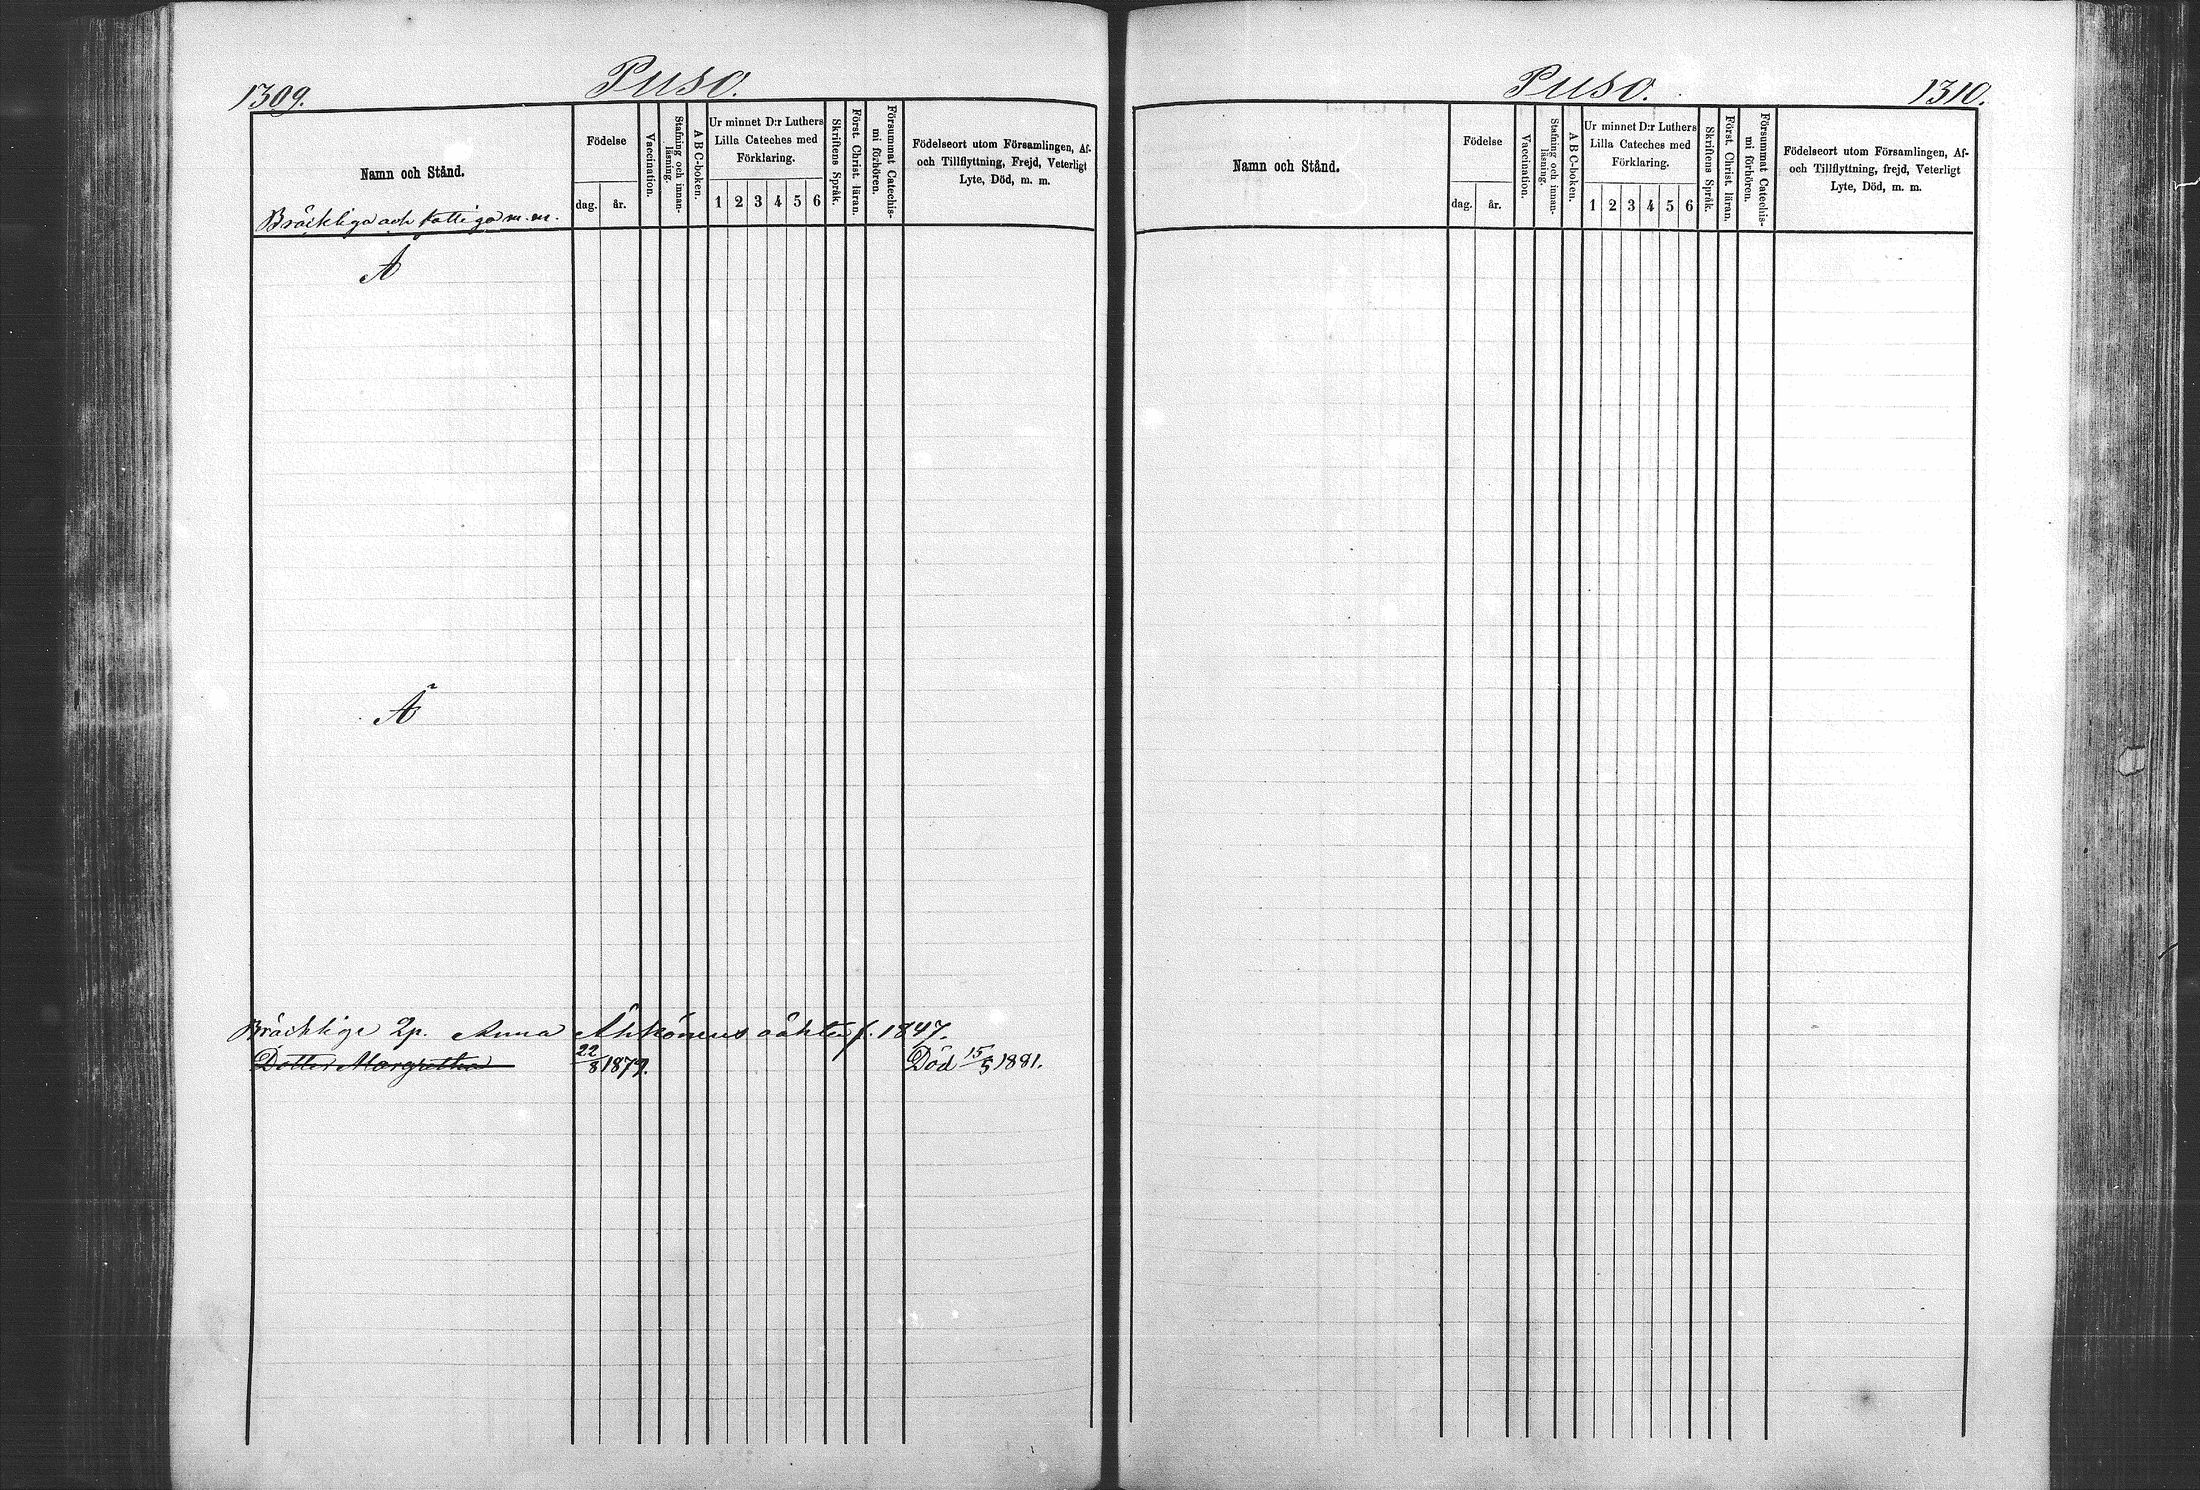 1309.
Puso.
Namn och Stånd.
Bräckliga och fattiga m. m.
Födelse
dag. år.
Vaccination.
Stafning och innan-
läsning.
A B C-boken.
Ur minnet D:r Luthers
Lilla Cateches med
Förklaring.
1 2 3 4 5 6
Skriftens Språk.
Först. Christ. läran.
Försummat Catechis-
mi förhören.
Födelseort utom Församlingen, Af-
och Tillflyttning, Frejd, Veterligt
Lyte, Död, m. m.
Å
Ä
Bräcklige 2p. Anna oäkta f. 1847.
Dotter Margretha 22/8 1879. Död 15/5 1881.
Puso.
1310.
Namn och Stånd.
Födelse
dag. år.
Vaccination.
Stafning och innan-
läsning.
A B C-boken.
Ur minnet D:r Luthers
Lilla Cateches med
Förklaring.
1 2 3 4 5 6
Skriftens Språk.
Först. Christ. läran.
Försummat Catechis-
mi förhören.
Födelseort utom Församlingen, Af-
och Tillflyttning, frejd, Veterligt
Lyte, Död, m. m.